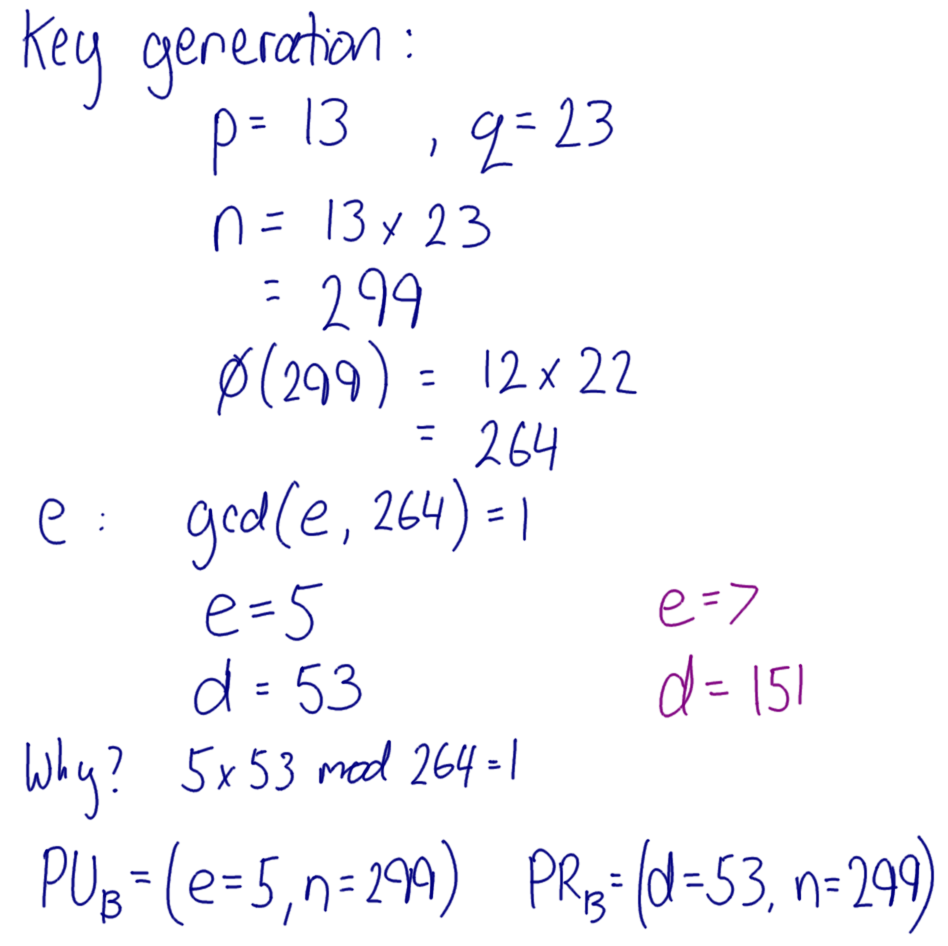 Key generation:
p= 13 , q= 23
n= 13 x 23
= 299
ø(299) = 12 x 22
= 264
e: gcd(e, 264) = 1
e=5 e=7
d = 53 d= 151
Why? 5x53 mod 264=1
PU_B=(e=5,n=299) PR_B=(d=53, n=299)